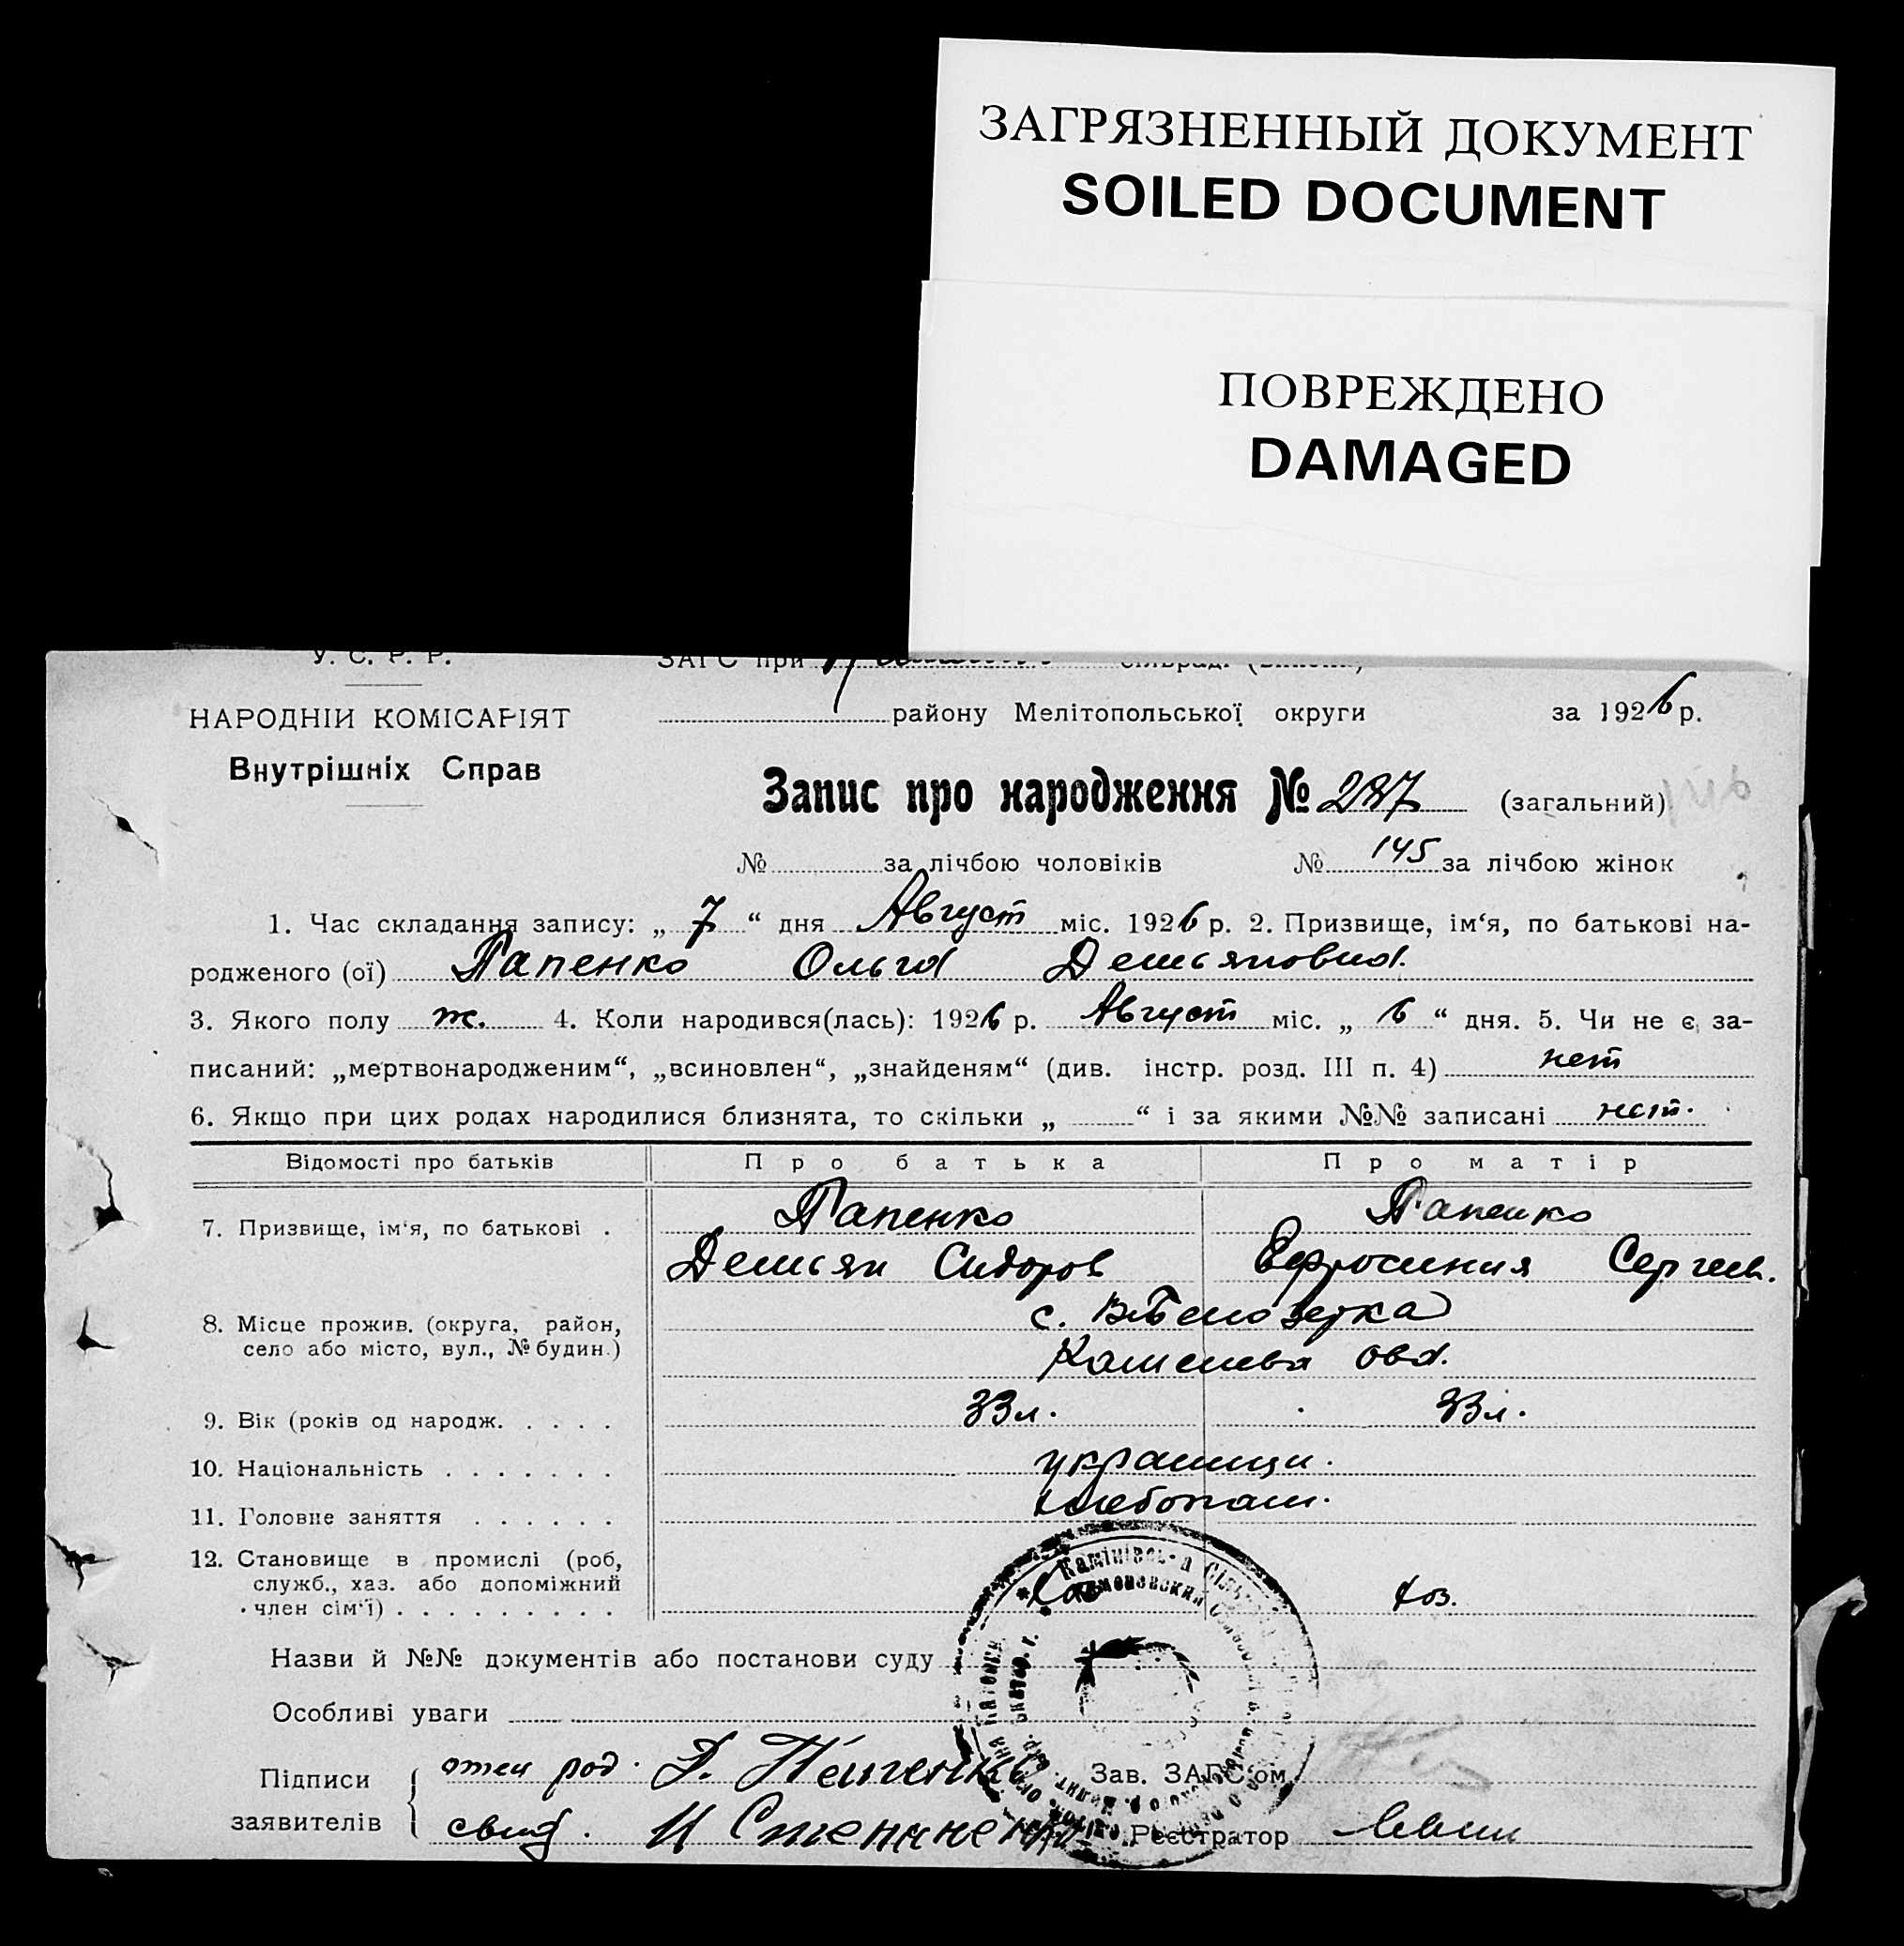 ЗАГРЯЗНЕННЫЙ ДОКУМЕНТ
SOILED DOCUMENT
ПОВРЕЖДЕНО
DAMAGED
У. С. Р. Р.
ЗАГС при
НАРОДНІЙ КОМІСАРІЯТ
району Мелітопольської округи за 1926 р.
Внутрішніх Справ
Запис про народження № 287 (загальний)
№ за лічбою чоловіків № 145 за лічбою жінок
1. Час складання запису: „ 7 “ дня Август міс. 1926 р. 2. Призвище, ім‘я, по батькові на-
родженого (ої) Папенко Ольга Демьяновна
3. Якого полу ж. 4. Коли народився(лась): 1926 р. Август міс. „ 6 “ дня. 5. Чи не є за-
писаний: „мертвонародженим“, „всиновлен“, „знайденям“ (див. інстр. розд. III п. 4) нет
6. Якщо при цих родах народилися близнята, то скільки „ “ і за якими №№ записані нет.
Відомості про батьків Про батька Про матір
7. Призвище, ім‘я, по батькові . Папенко Папенко
Демьян Сидоров Ефросиния Сергеев.
8. Місце прожив. (округа, район, с. Белозерка
село або місто, вул., № будин.)
9. Вік (років од народж. . . . . 33 л. 33 л.
10. Національність . . . . . . . украинци.
11. Головне заняття . . . . . . хлебопаш.
12. Становище в промислі (роб,
служб., хаз. або допоміжний
член сім‘ї) . . . . . . . . . хоз.
Назви й №№ документів або постанови суду
Особливі уваги
Підписи отец род. Зав. ЗАГС‘ом
заявителів свид. Реєстратор